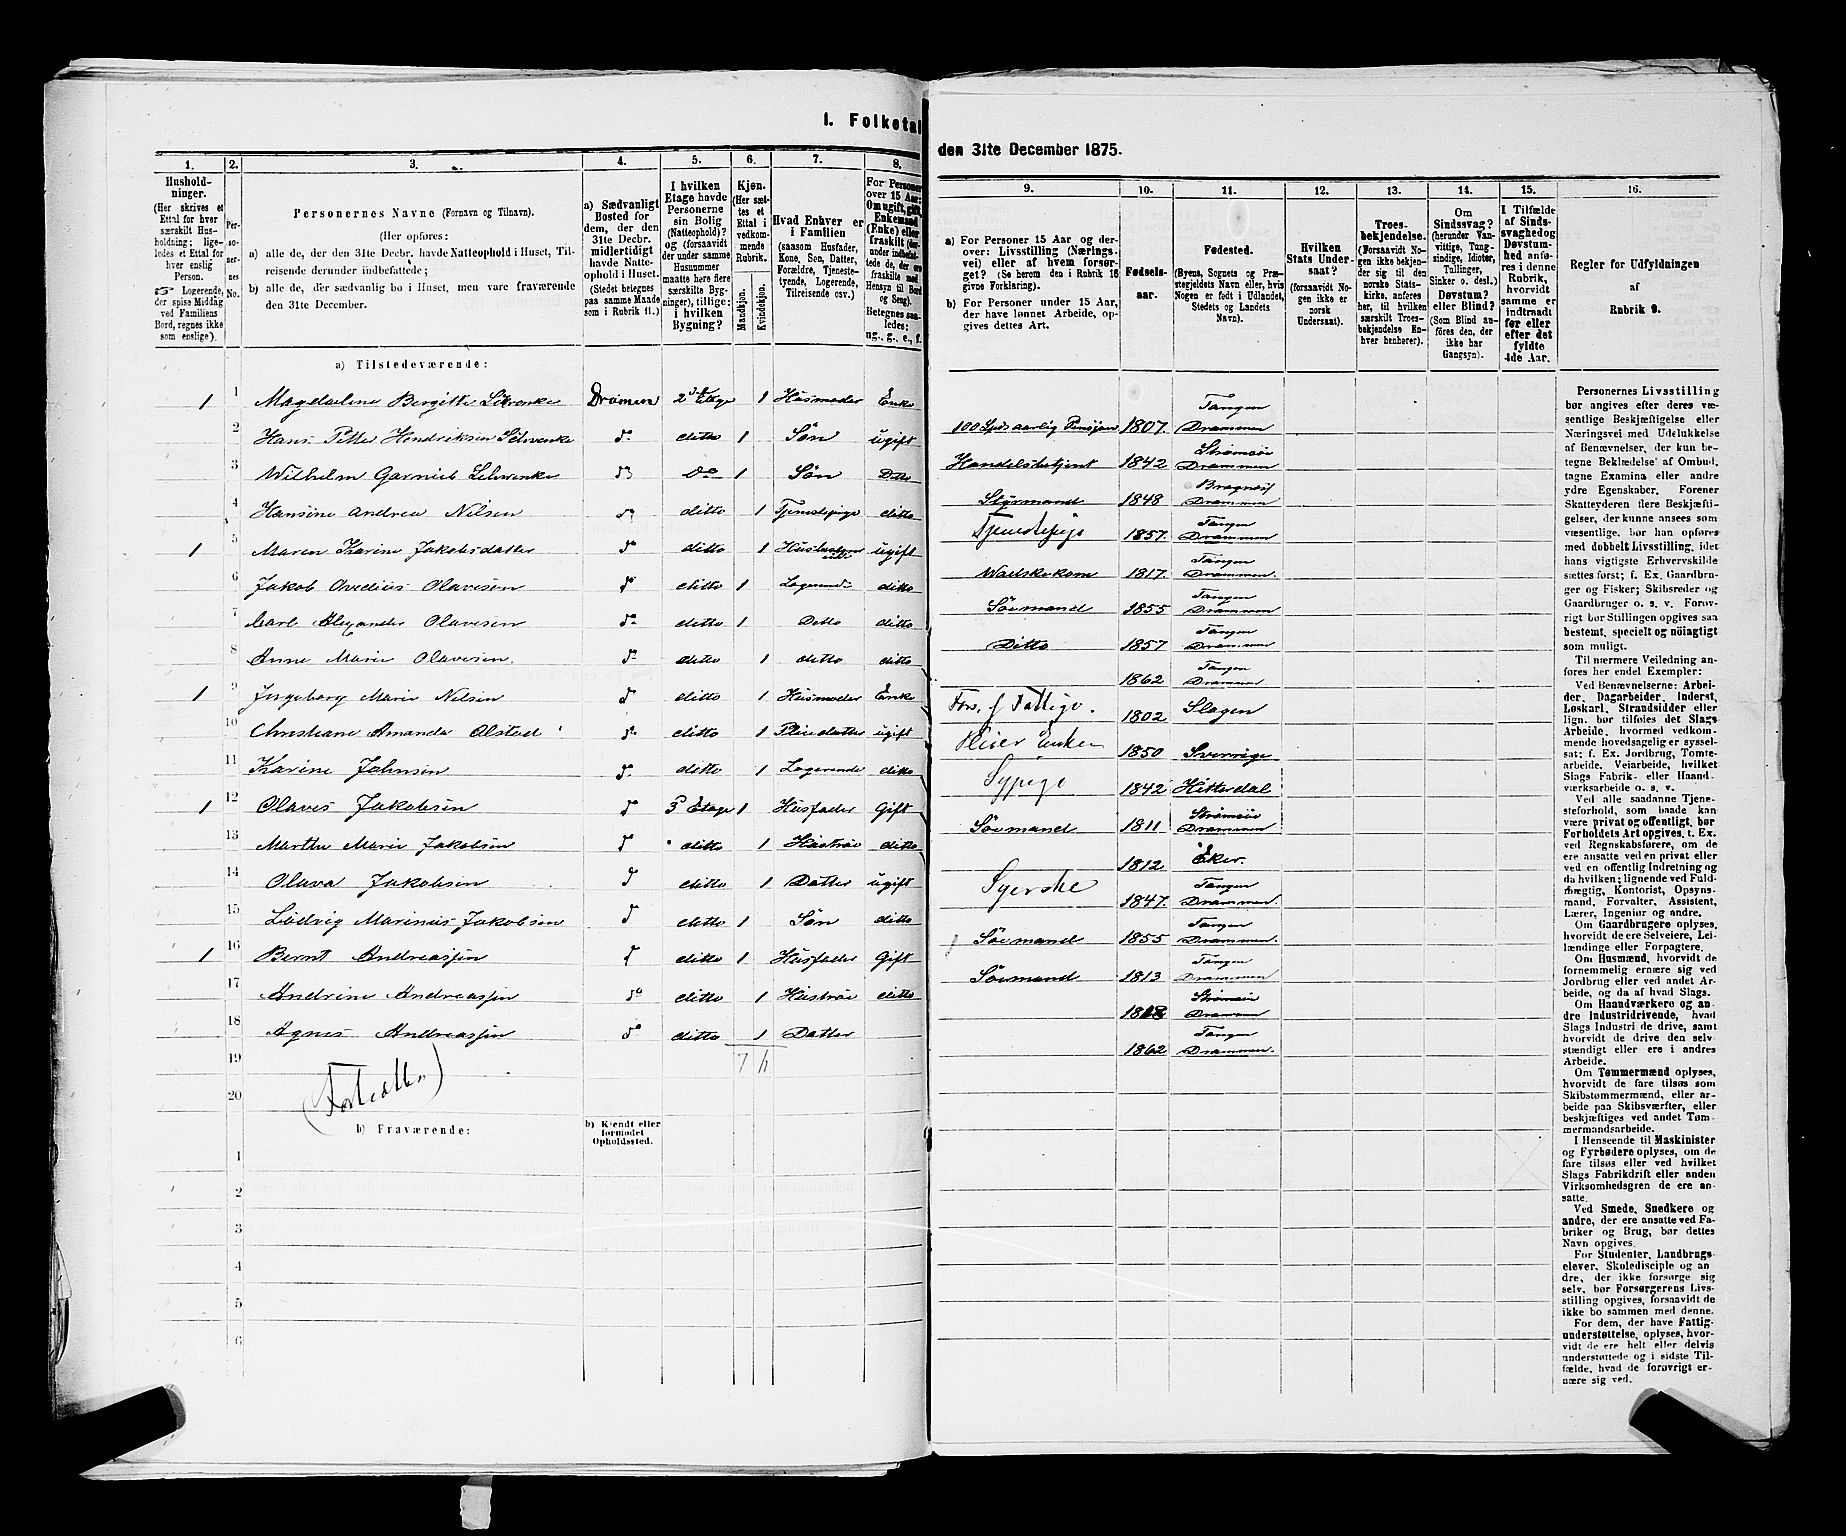 I. Folketal
den 31te December 1875.
1. 2. 3. 4. 5. 6. 7. 8.
9. 10. 11. 12. 13. 14. 15. 16.
Husholdninger.
(Her skrives et
Ettal for hver
særskilt Husholdning;
ligeledes et Ettal for
hver enslig
Person.
☞ Logerende,
der spise Middag
ved Familiens
Bord, regnes ikke
som enslige).
Personernes No.
Personernes Navne (Fornavn og Tilnavn).
(Her opføres:
a) alle de, der den 31te Decbr. havde Natteophold i Huset, Tilreisende derunder indbefattede;
b) alle de, der sædvanlig bo i Huset, men vare fraværende
den 31te December.
a) Sædvanligt
Bosted for
dem, der den
31te Decbr.
midlertidigt
havde Natteophold i Huset.
(Stedet betegnes
paa samme Maade
som i Rubrik 11.)
I hvilken
Etage havde
Personerne
sin Bolig
(Natteophold)?
og (forsaavidt
der under samme
Husnummer
maatte høre flere
særskilte Bygninger), tillige:
i hvilken
Bygning?
Kjøn.
(Her sættes et
Ettal i
vedkommende
Rubrik.
Mandkjøn.
Kvindekjøn.
Hvad Enhver er
i Familien
(saasom Husfader,
Kone, Søn, Datter,
Forældre, Tjenestetyende, Logerende,
Tilreisende osv.)
For Personer
over 15 Aar:
Om ugift, gift,
Enkemand
(Enke) eller
fraskilt
Betegnes saaledes:
ug., g., e., f.
a) For Personer 15 Aar og derover: Livsstilling (Næringsvei) eller af hvem forsørget? (Se herom den i Rubrik 16
givne Forklaring).
b) For Personer under 15 Aar,
der have lønnet Arbeide, opgives dettes Art.
Fødselsaar.
Fødested.
(Byens, Sognets og Præstegjeldets Navn eller, hvis
Nogen er født i Udlandet,
Stedets og Landets
Navn).
Hvilken
Stats Undersaat?
(forsaavidt Nogen ikke er
norsk
Undersaat).
Troesbekjendelse.
(Forsaavidt Nogen ikke bekjender sig til den
norske Statskirke, anføres
her, til hvilken
særskilt Troesbekjendelse Enhver henhører).
Om
Sindssvag?
(herunder Vanvittige, Tungsindige, Idioter,
Tullinger,
Sinker o. desl.)
Døvstum?
eller Blind?
(Som Blind anføres den, der
ikke har
Gangsyn).
I Tilfælde
af Sindssvaghed og
Døvstumhed anføres i denne
Rubrik,
hvorvidt
samme er
indtraadt
før eller
efter det
fyldte
4de Aar.
Regler for Udfyldningen
af
Rubrik 9.
a) Tilstedeværende:
1 1 Magdalene Bergitte Schwenke Dramen 2den Etage 1 Husmoder Enke 100 Spd aarlig Pensjon 1807. Tangen Drammen
2 Hans Petter Hendriksen Schwenke do ditto 1 Søn ugift Handelsbetjent 1842 Strømsø Drammen
3 Wilhelm Garnieb Schwenke do do 1 Søn Ditto Styrmand 1848 Bragnæs Drammen
4 Hansine Andrea Nilsen do ditto 1 Tjenestepige ditto Tjenestepige 1857. Tangen Drammen
1 5 Maren Karine Jakobsdatter do ditto 1 ugift Vadskekone 1817. Tangen Drammen.
6 Jakob Ovedius Olavesen do ditto 1 Logerende ditto Søemand 1855 Tangen Drammen
7 Carl Alexander Olavesen do ditto 1 Ditto ditto Ditto 1857 Tangen Drammen
8 Anne Marie Olavesen. do ditto 1 ditto ditto 1862 Tangen Drammen
1 9 Ingeborg Marie Nilsen do ditto 1 Husmoder Enke Fors. f Fattige. 1802 Slagen
10 Christiane Amanda Olstad do ditto 1 Pleiedatter ugift Pleier Enken 1850 Sverrige
11 Karine Johnsen do ditto 1 Logerende ditto Sypige 1842 Hitterdal
1 12 Olaves Jakobsen do 3 Etage 1 Husfader Gift Søemand 1811 Strømsøe Drammen
13 Marthe Marie Jakobsen do ditto 1 Hustrue ditto 1812 Eker.
14 Olava Jakobsen do ditto 1 Datter ugift Syerske 1847. Tangen Drammen.
15 Ludvig Marinus Jakobsen do ditto 1 Søn ditto Søemand 1855 Tangen Drammen.
1 16 Bernt Andreassen do ditto 1 Husfader Gift Søemand 1813 Tangen Drammen
17 Andrine Andreassen do ditto 1 Hustrue ditto Strømsøe Drammen
18 Agnes Andreassen do ditto 1 Datter 1862 Tangen Drammen.
19 7 11
20
b) Fraværende:
b) Kjendt eller
formodet
Opholdssted.
1
2
3
4
5
6
Personernes Livsstilling
bør angives efter deres væsentlige Beskjæftigelse eller
Næringsvei med Udelukkelse
af Benævnelser, der kun betegne Beklædelse af Ombud,
tagne Examina eller andre
ydre Egenskaber. Forener
Skatteyderen flere Beskjæftigelser, der kunne ansees som
væsentlige, bør han opføres
med dobbelt Livsstilling, idet
hans vigtigste Erhvervskilde
sættes først; f. Ex. Gaardbruger og Fisker; Skibsreder og
Gaardbruger o. s. v. Forøvrigt bør Stillingen opgives saa
bestemt, specielt og nøiagtigt
som muligt.
Til nærmere Veiledning anføres her endel Exempler:
Ved Benævnelserne: Arbeider, Dagarbeider, Inderst,
Løskarl, Strandsidder eller
lign. bør tilføies det Slags
Arbeide, hvormed vedkommende hovedsagelig er sysselsat; f. Ex. Jordbrug, Tomtearbeide, Veiarbeide, hvilket
Slags Fabrik- eller Haandværksarbeide o. s. v.
Ved alle saadanne Tjenesteforhold, som baade kan
være privat og offentligt, bør
Forholdets Art opgives, t. Ex.
ved Regnskabsførere, om de
ere ansatte ved en privat eller
en offentlig Indretning og da
hvilken; lignende ved Fuldmægtig, Kontorist, Opsynsmand, Forvalter, Assistent,
Lærer, Ingeniør og andre.
Om Gaardbrugere oplyses,
hvorvidt de ere Selveiere, Leilændinge eller Forpagtere.
Om Husmænd, hvorvidt de
fornemmelig ernære sig ved
Jordbrug eller ved andet Arbeide, og da af hvad Slags.
Om Haandværkere og andre Industridrivende, hvad
Slags Industri de drive, samt
hvorvidt de drive den selvstændigt eller ere i andres
Arbeide.
Om Tømmermænd oplyses,
hvorvidt de fare tilsøs som
Skibstømmermænd, eller arbeide paa Skibsværfter, eller
beskjæftiges ved andet Tømmermandsarbeide.
I Henseende til Maskinister
og Fyrbødere oplyses, om de
fare tilsøs eller ved hvilket
Slags Fabrikdrift eller anden
Virksomhedsgren de ere ansatte.
Ved Smede, Snedkere og
andre, der ere ansatte ved Fabriker og Brug, bør dettes
Navn opgives.
For Studenter, Landbrugselever, Skoledisciple og andre, der ikke forsørge sig
selv, bør Forsørgerens Livsstilling opgives, forsaavidt de
ikke bo sammen med denne.
For dem, der have Fattigunderstøttelse, oplyses, hvorvidt de ere helt eller delvis
understøttede og i sidste Tilfælde, hvad de forøvrigt ernære sig ved.